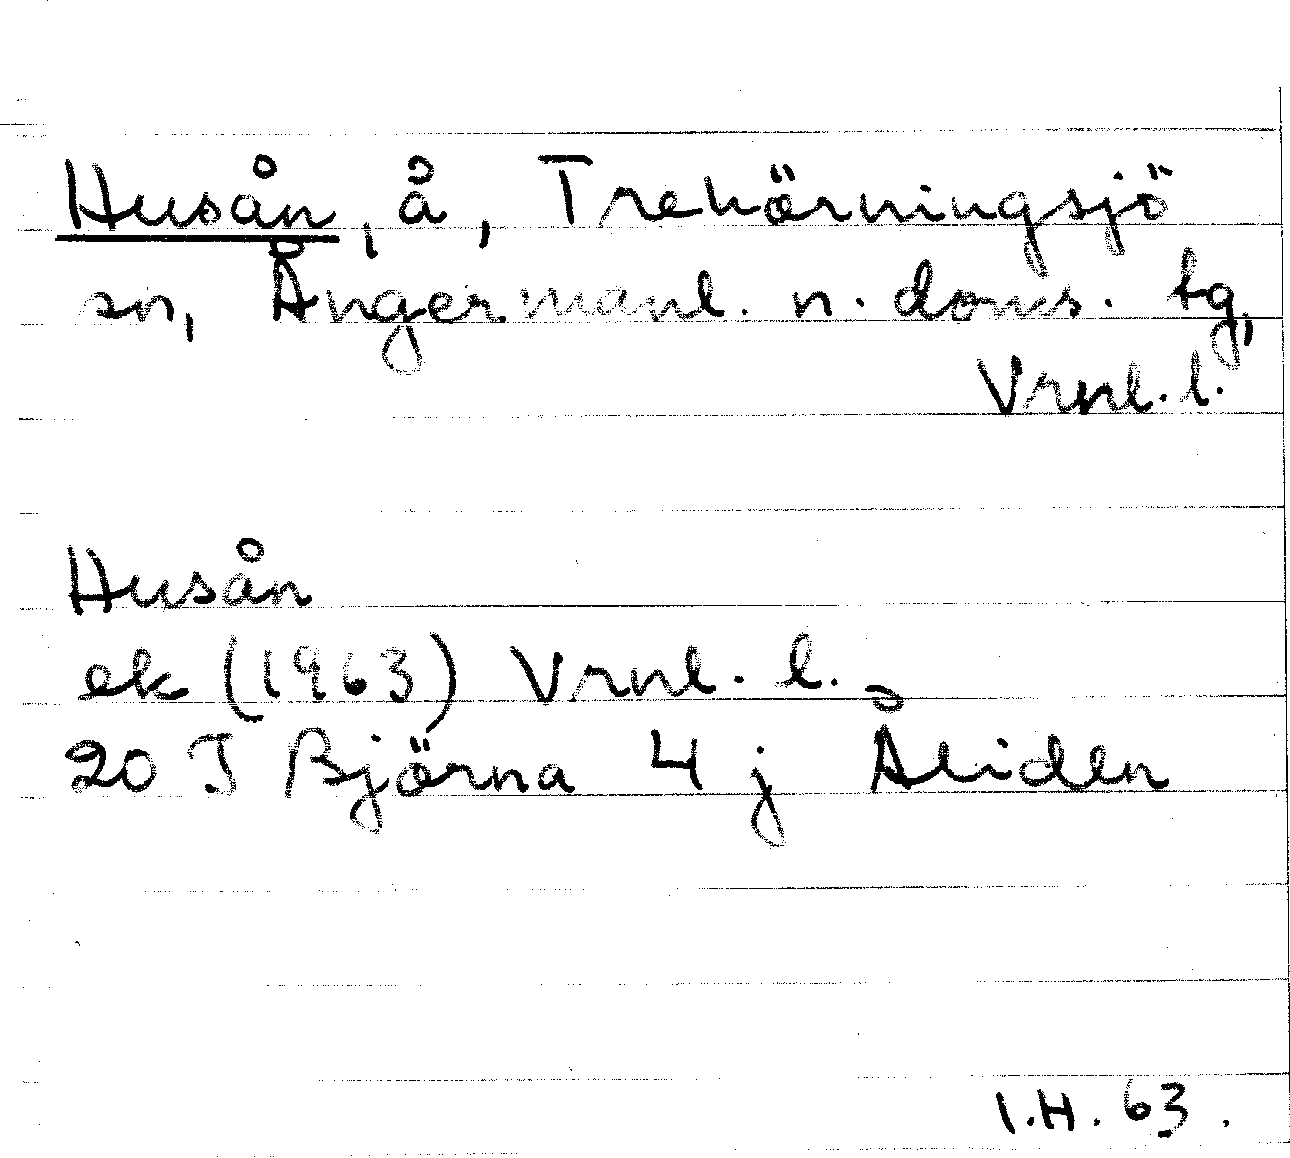 Husån, å, Trehörningsjö
sn, Ångermanl. n. doms. tg,
Vrnl. l.
Husån
ek (1963) Vrnl. l.
20 J Björna 4 j Åliden
I.H. 63.